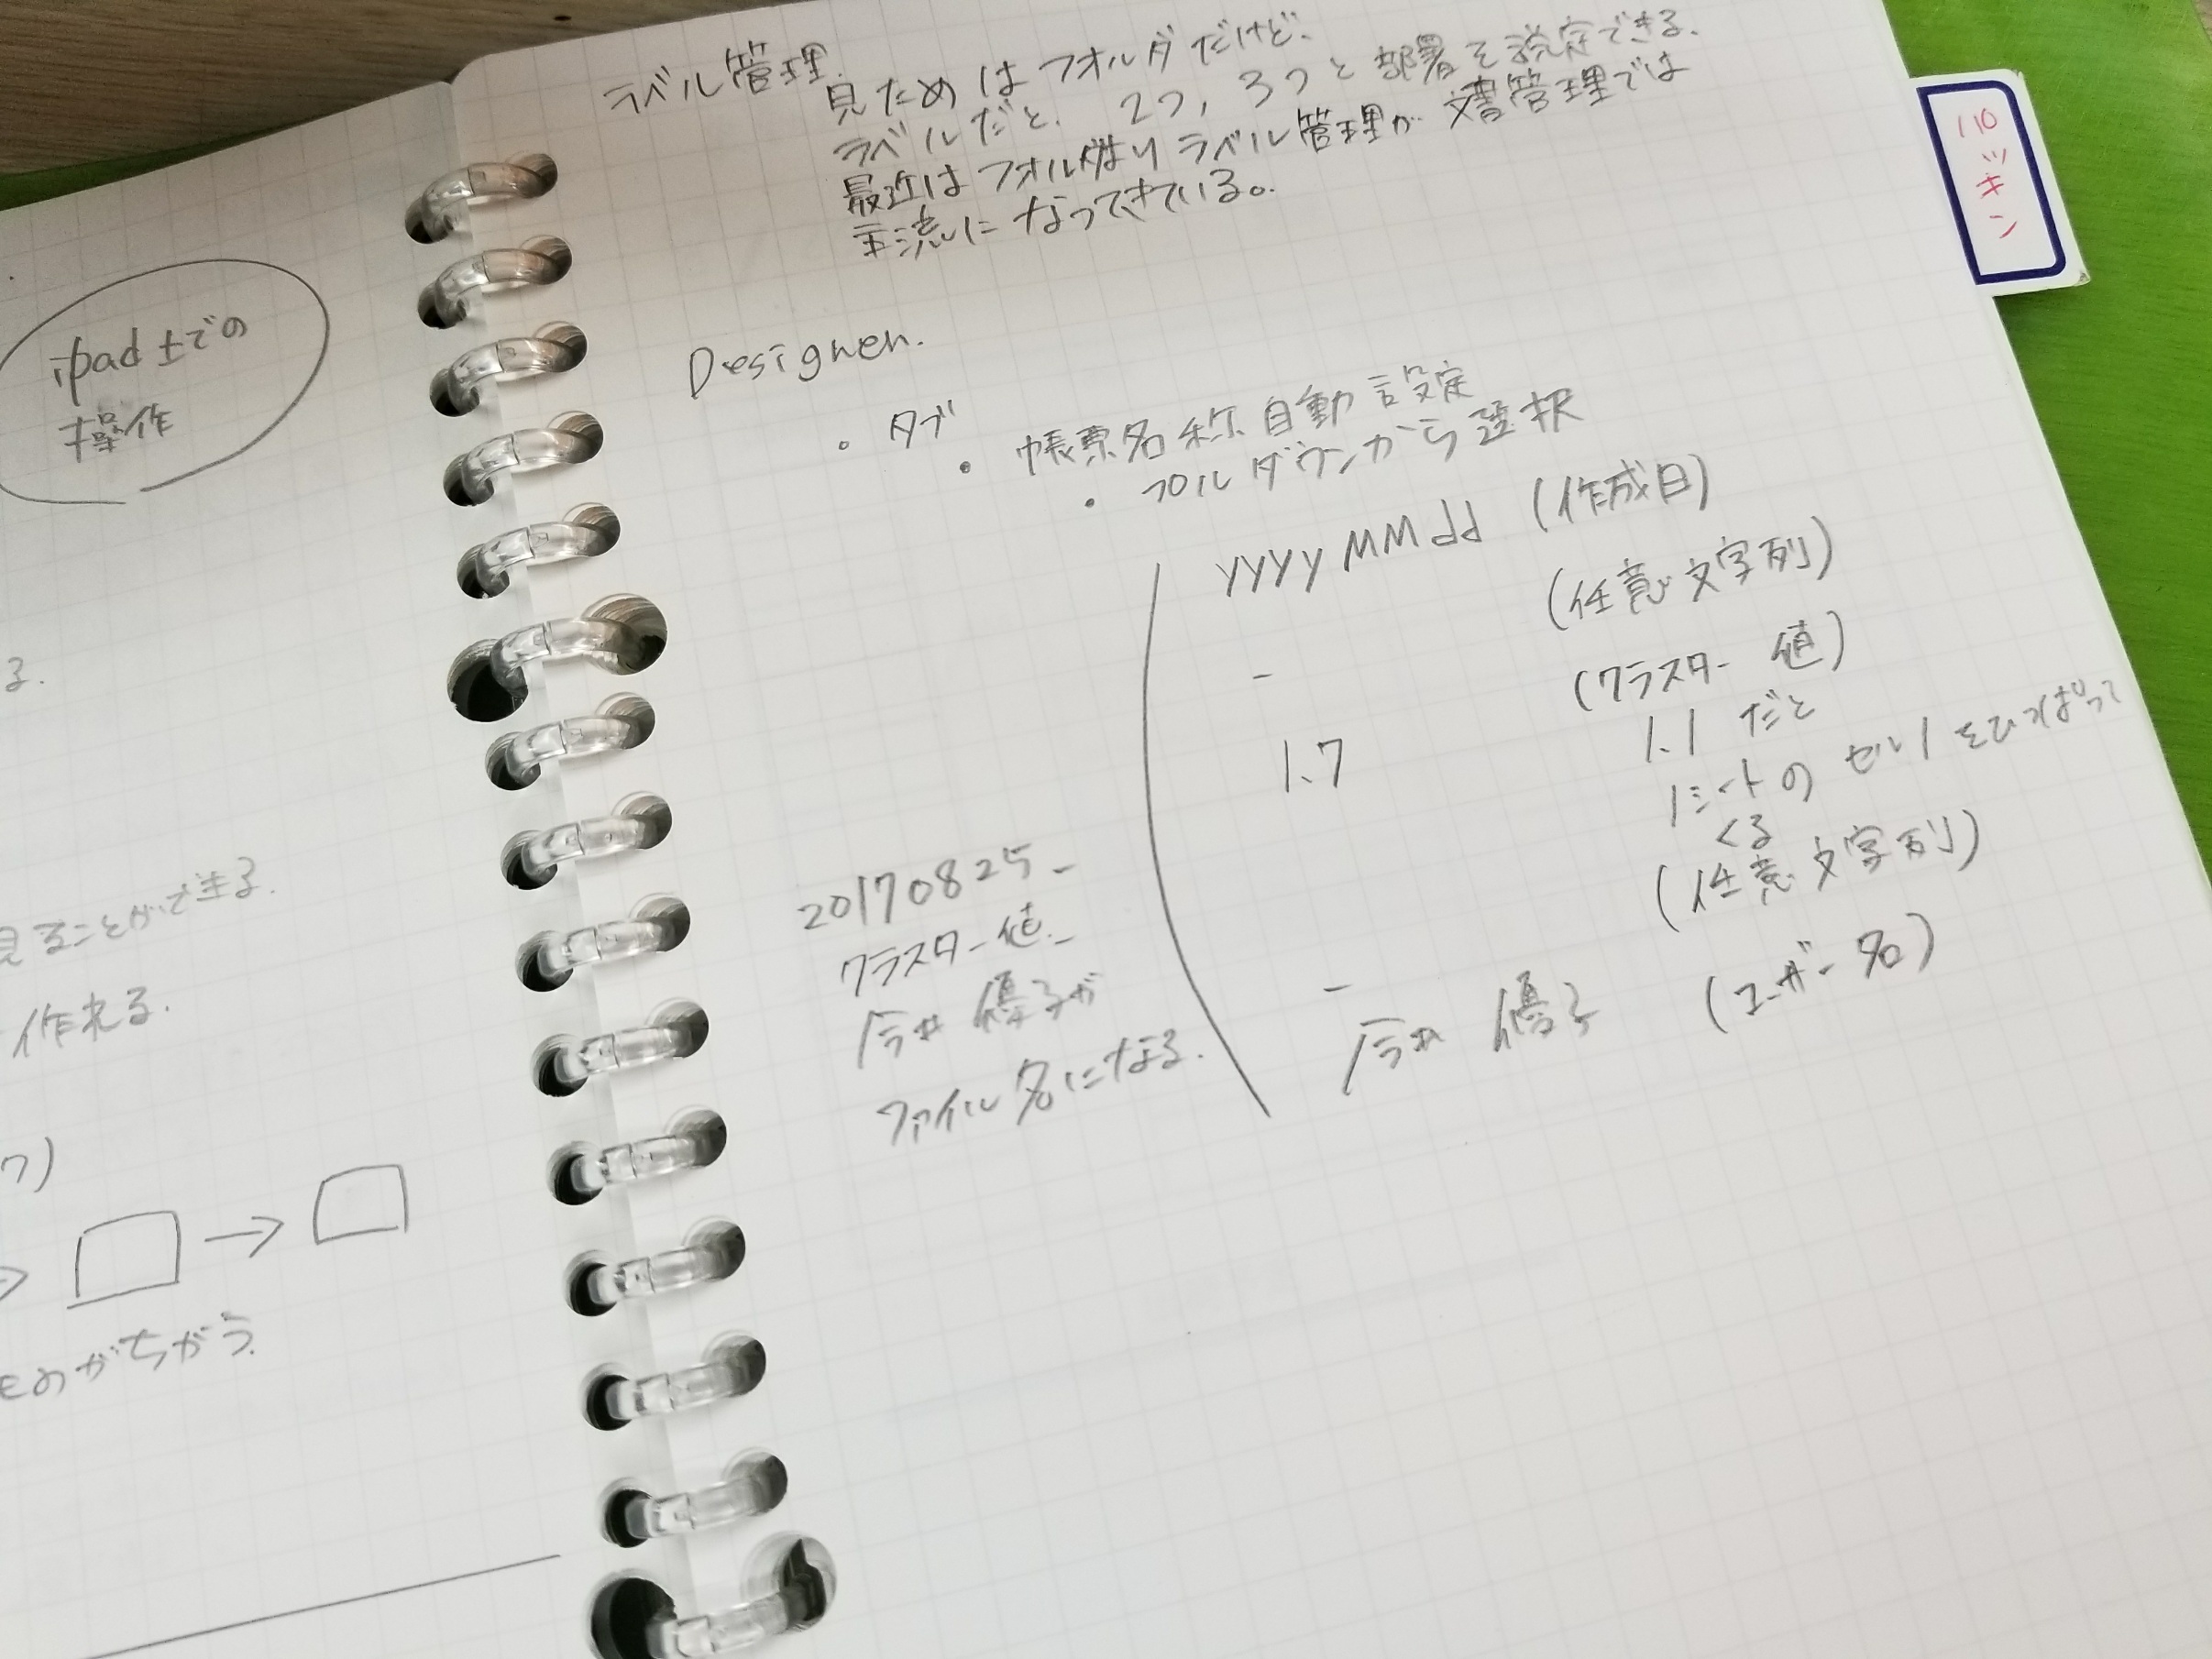 ipad上での
操作
る.
見ることができる.
作れる.
ク)
ものがちがう.
ラベル管理.
見ためはフォルダだけど、
ラベルだと、2つ, 3つと部署を設定できる.
最近はフォルダよりラベル管理が文書管理では
主流になってきている。
Designer.
・タブ
・帳票名称自動設定
・プルダウンから選択
yyyyMMdd (作成日)
(任意文字列)
- (クラスター値)
1.7 1.1 だと
1シートのセル1をひっぱって
くる
(任意文字列)
-
今井 優子 (ユーザー名)
20170825_
クラスター値_
今井 優子が
ファイル名になる.